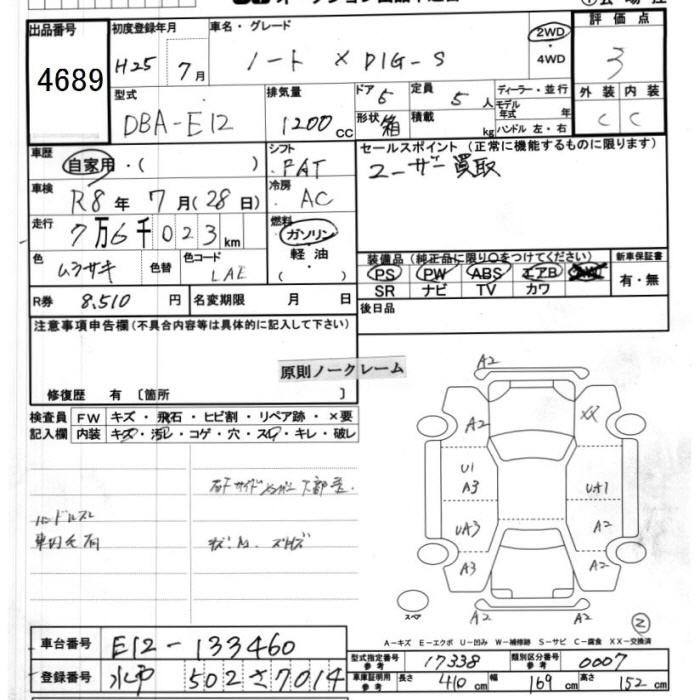 出品番号 初度登録年月 車名・グレード 評価点
4689 H25 7月 ノート X DIG-S 2WD・4WD 3
型式 排気量 ドア 5 定員 5人 ディーラー・並行 外装 内装
DBA-E12 1200cc 形状 箱 積載 kg モデル年式 年 ハンドル 左・右 C C
車歴 自家用・( ) シフト FAT セールスポイント (正常に機能するものに限ります)
ユーザー買取
車検 R8年 7月(28日) 冷房 AC
走行 7万6千023km 燃料 ガソリン・軽油・
色 ムラサキ 色替 色コード LAE
装備品 (純正品に限り○をつけてください) 新車保証書
PS PW ABS エアB 有・無
SR ナビ TV カワ
R券 8,510円 名変期限 月 日 後日品
注意事項申告欄 (不具合内容等は具体的に記入して下さい)
原則ノークレーム
修復歴 有〔箇所 〕
検査員記入欄 FW キズ・飛石・ヒビ割・リペア跡・×要
内装 キズ・汚レ・コゲ・穴・スレ・キレ・破レ
ハンドルスレ
A2
A2 XX
U1
A3 UA1
UA3 A2
A3 A2
A2 A2
スペア
2
A-キズ E-エクボ U-凹み W-補修跡 S-サビ C-腐食 XX-交換済
車台番号 E12-133460
登録番号 水戸 502 さ 7014
型式指定番号 参考 17338 類別区分番号 参考 0007
車庫証明用 参考 長さ 410cm 幅 169cm 高さ 152cm